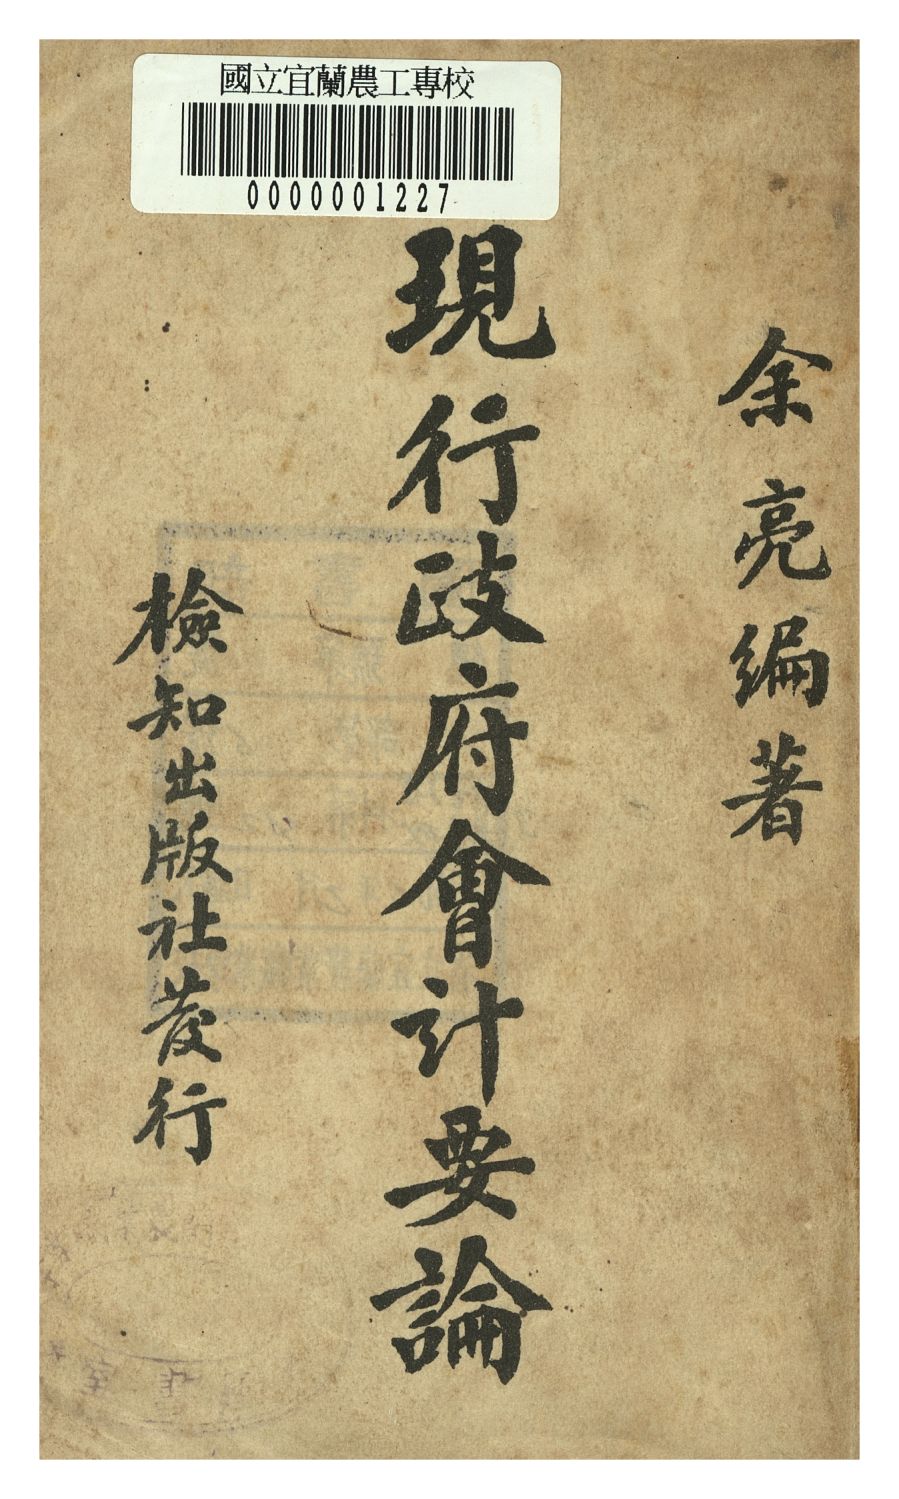 國立宜蘭農工專校
0000001227
余亮編著
現行政府會計要論
檢知出版社發行